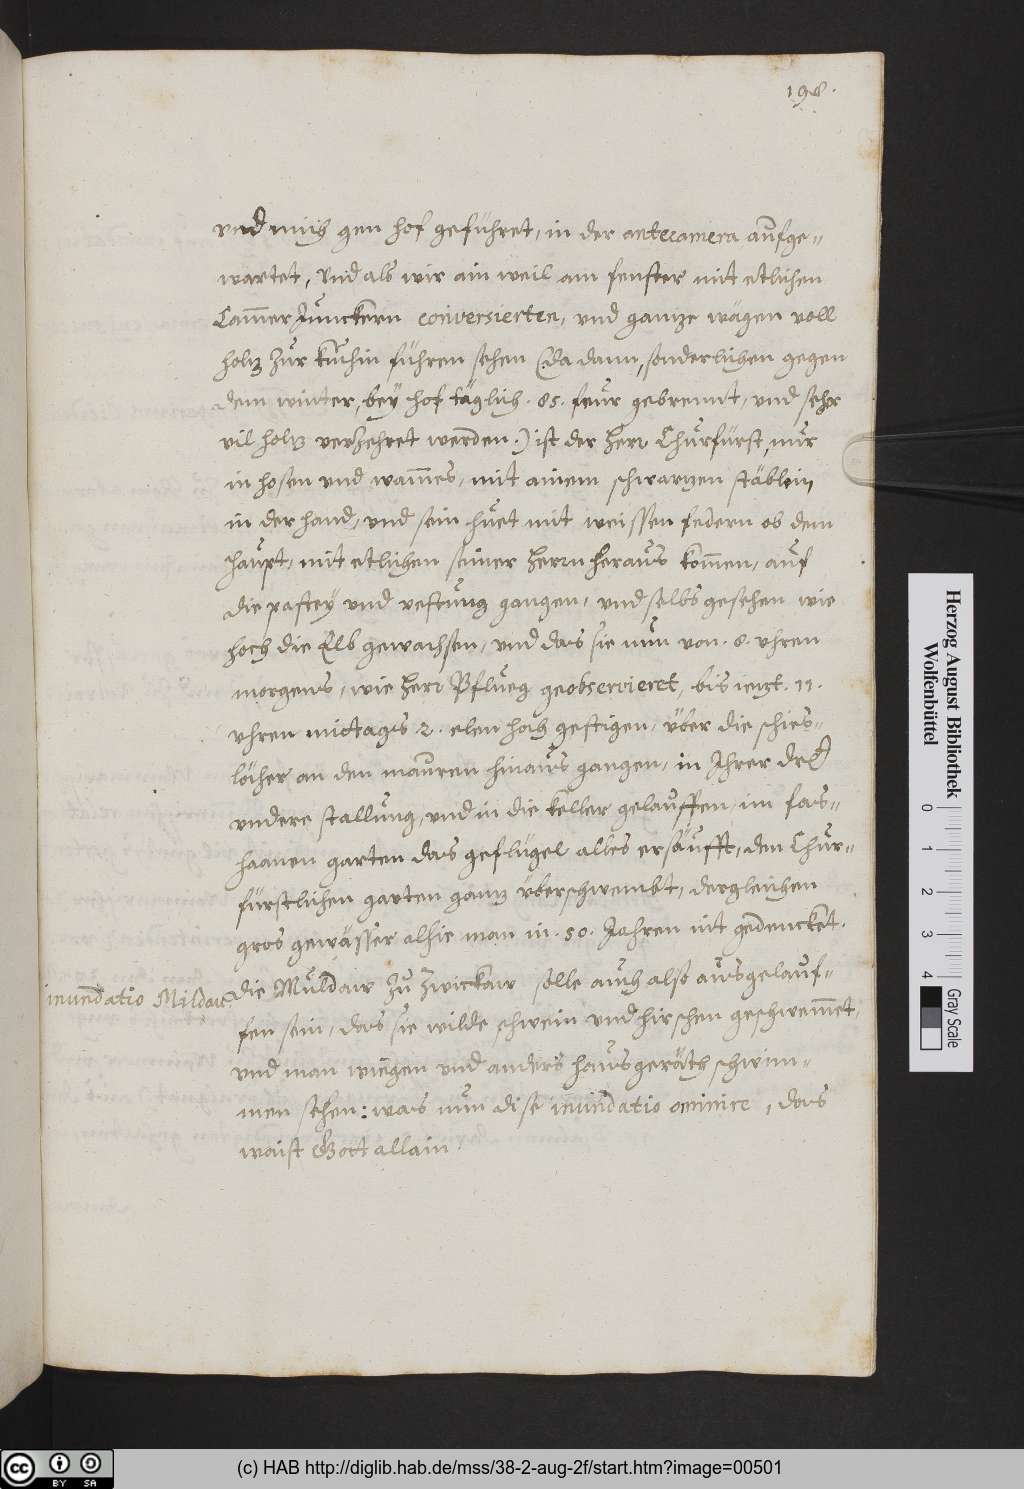 198.
vnd mich gen hof geführet, in der antecamera aufge-
wartet, Vnd als wir ain weil am fenster mit etlichen
Cam̄er Junckern conversierten, vnd gantze wägen voll
holtz zur kuchin führen sehen (da dann, sonderlichen gegen
dem winter, bey hof täglich . 85. feur gebrennt, vnd sehr
vil holtz verzehret werden.) ist der Herr Churfürst, nur
in hosen vnd wam̄es, mit ainem schwartzen stäblein
in der hand, vnd sein huet mit weissen federn ob dem
haupt, mit etlichen seiner Herrn heraus kom̄en, auf
die pastey vnd vestung gangen, vnd selbs gesehen wie
hoch die Elb gewachsen, vnd das sie nun von . 8. vhren
morgens, wie Herr Pflueg geobservieret, bis ietzt . 11.
vhren mittags 2. elen hoch gestigen, über die schies-
löcher an den mauren hinaus gangen, in Ihrer Drl.
vndere stallung, vnd in die keller geloffen, im fas-
haanen garten das geflügel alles ersäufft, den Chur-
fürstlichen garten gantz überschwembt, dergleichen
gros gewässer alhie man in . 50. Jahren nit gedencket.
inundatio Mildae.
die Muldaw zu Zwickaw solle auch also ausgelauf-
fen sein, das sie wilde schwein vnd hirschen geschwem̄et,
vnd man wiegen vnd anders hausgeräth schwim-
men sehen: was nun dise inundatio ominire, das
waist Gott allain.
Herzog August Bibliothek
Wolfenbüttel
0 1 2 3 4
Gray Scale
cc BY SA
(c) HAB http://diglib.hab.de/mss/38-2-aug-2f/start.htm?image=00501